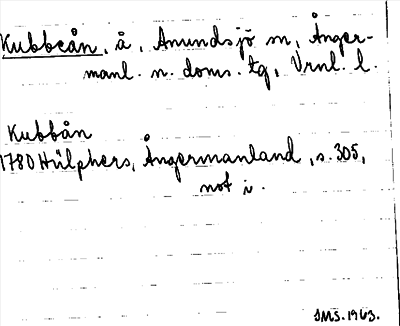 Kubbeån, å, Anundsjö sn, Ånger-
manl. n. doms. tg, Vrnl. l.
Kubbån
1780 Hülphers, Ångermanland, s. 305,
not i.
SMS. 1963.